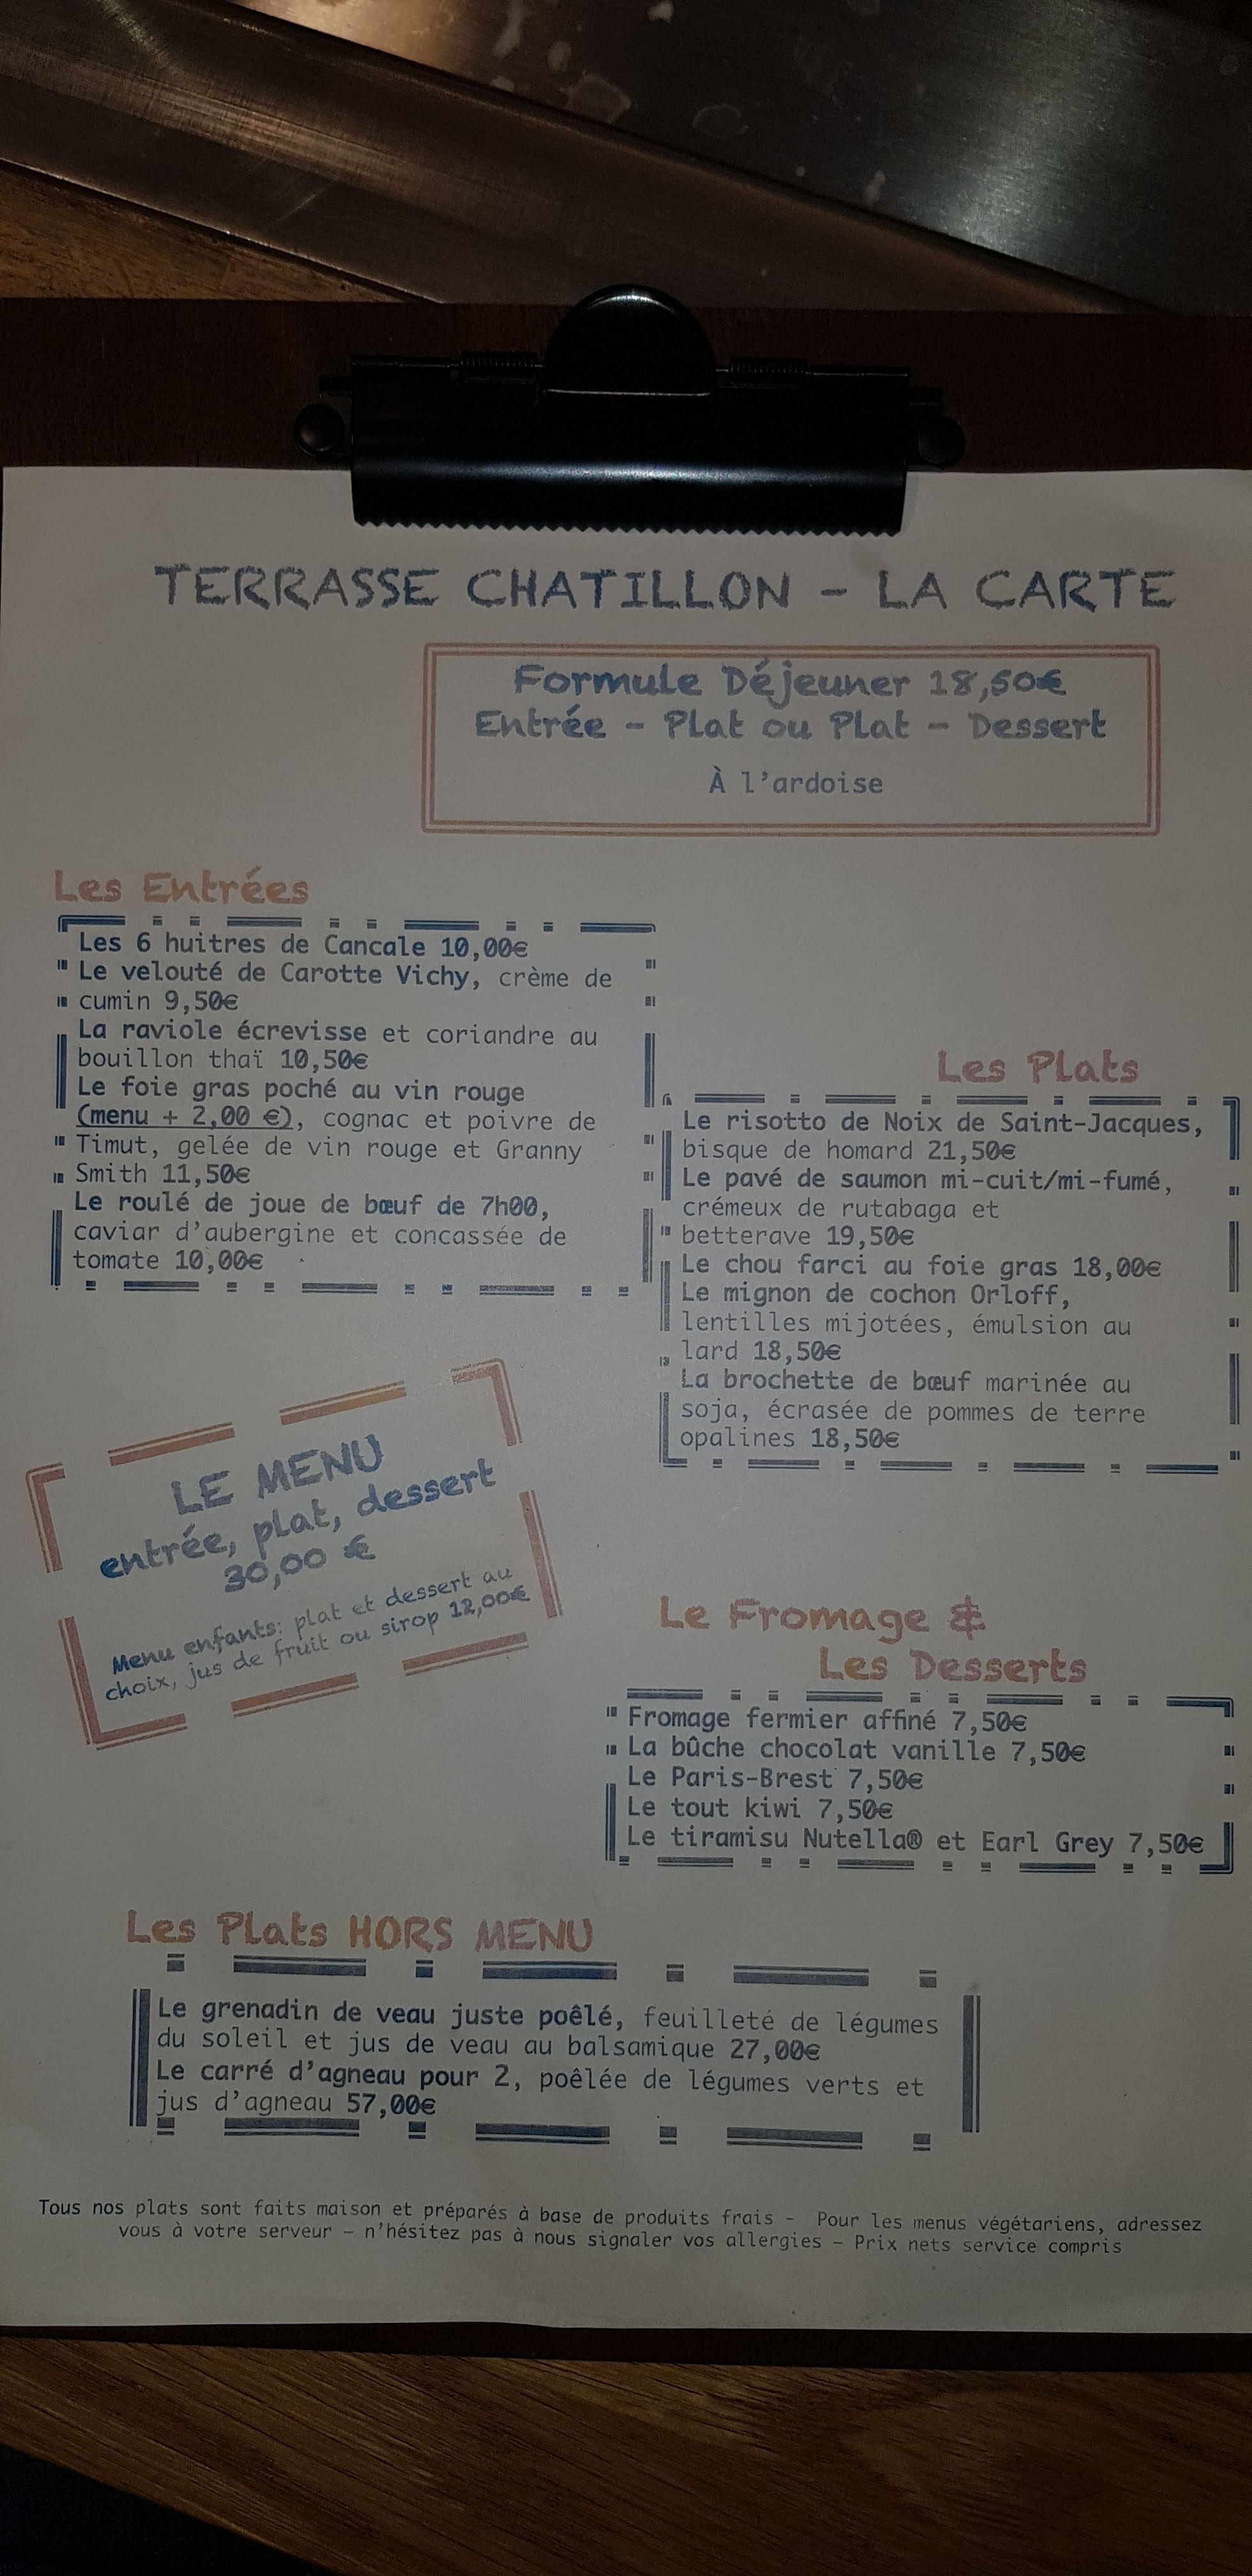 TERRASSE CHATILLON - LA CARTE
Formule Déjeuner 18,50€
Entrée - Plat ou Plat - Dessert
À l'ardoise
Les Entrées
Les 6 huitres de Cancale 10,00€
Le velouté de Carotte Vichy, crème de
cumin 9,50€
La raviole écrevisse et coriandre au
bouillon thaï 10,50€
Le foie gras poché au vin rouge
(menu + 2,00 €), cognac et poivre de
Timut, gelée de vin rouge et Granny
Smith 11,50€
Le roulé de joue de bœuf de 7h00,
caviar d'aubergine et concassée de
tomate 10,00€
Les Plats
Le risotto de Noix de Saint-Jacques,
bisque de homard 21,50€
Le pavé de saumon mi-cuit/mi-fumé,
crémeux de rutabaga et
betterave 19,50€
Le chou farci au foie gras 18,00€
Le mignon de cochon Orloff,
lentilles mijotées, émulsion au
lard 18,50€
La brochette de bœuf marinée au
soja, écrasée de pommes de terre
opalines 18,50€
LE MENU
entrée, plat, dessert
30,00 €
Menu enfants: plat et dessert au
choix, jus de fruit ou sirop 12,00€
Le Fromage &
Les Desserts
Fromage fermier affiné 7,50€
La bûche chocolat vanille 7,50€
Le Paris-Brest 7,50€
Le tout kiwi 7,50€
Le tiramisu Nutella® et Earl Grey 7,50€
Les Plats HORS MENU
Le grenadin de veau juste poêlé, feuilleté de légumes
du soleil et jus de veau au balsamique 27,00€
Le carré d'agneau pour 2, poêlée de légumes verts et
jus d'agneau 57,00€
Tous nos plats sont faits maison et préparés à base de produits frais - Pour les menus végétariens, adressez
vous à votre serveur – n'hésitez pas à nous signaler vos allergies – Prix nets service compris